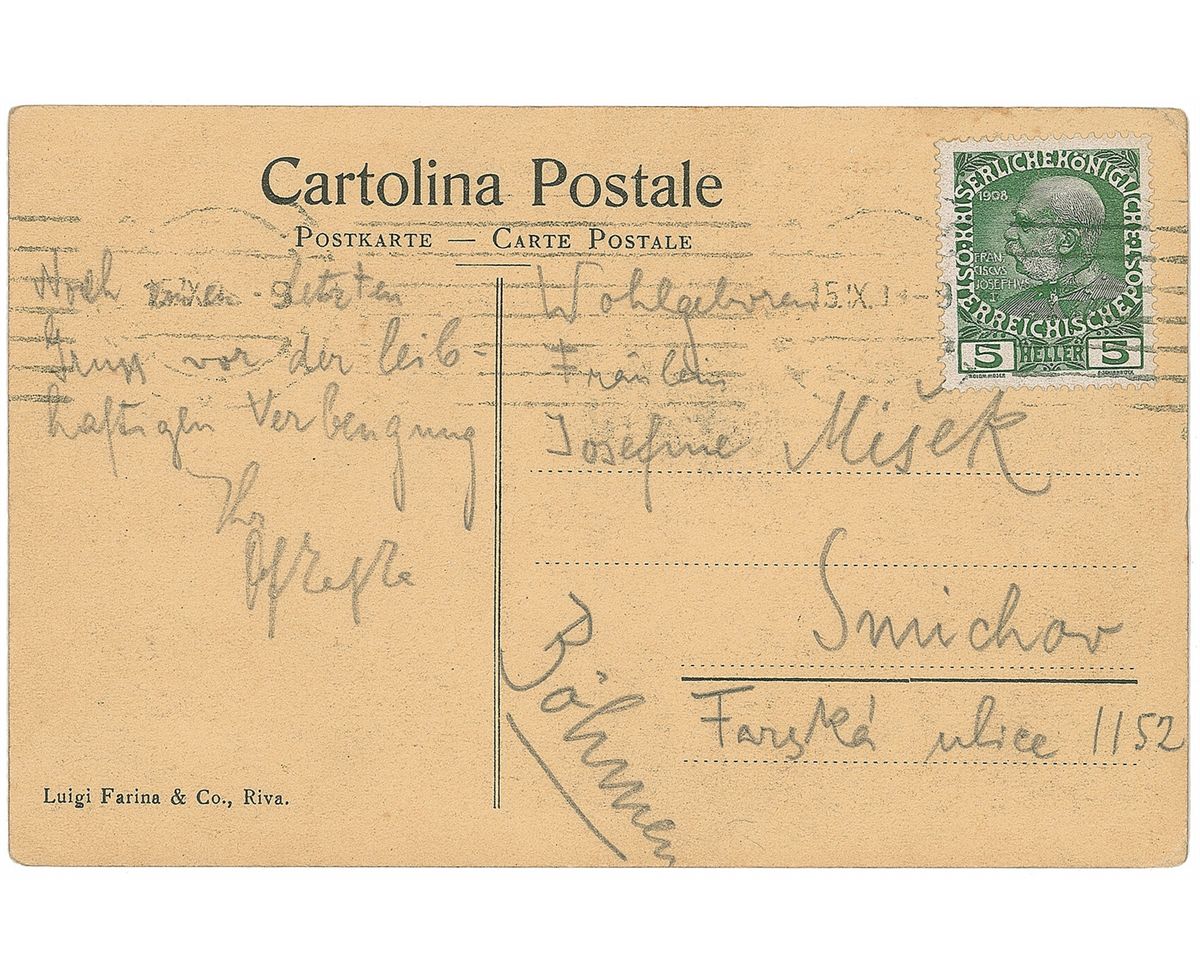 Cartolina Postale
POSTKARTE — CARTE POSTALE
Noch letzten
Gruss vor der leib-
haftigen Verbeugung
Ihr
Wohlgeboren
Fräulein
Josefine Mišek
Smichov
Farská ulice 1152
Böhmen
15.IX.1
KAISERLICHE KÖNIGLICHE ÖSTERREICHISCHE POST
1908
FRAN
CISCVS
IOSEPHVS
I
5 HELLER 5
Luigi Farina & Co., Riva.